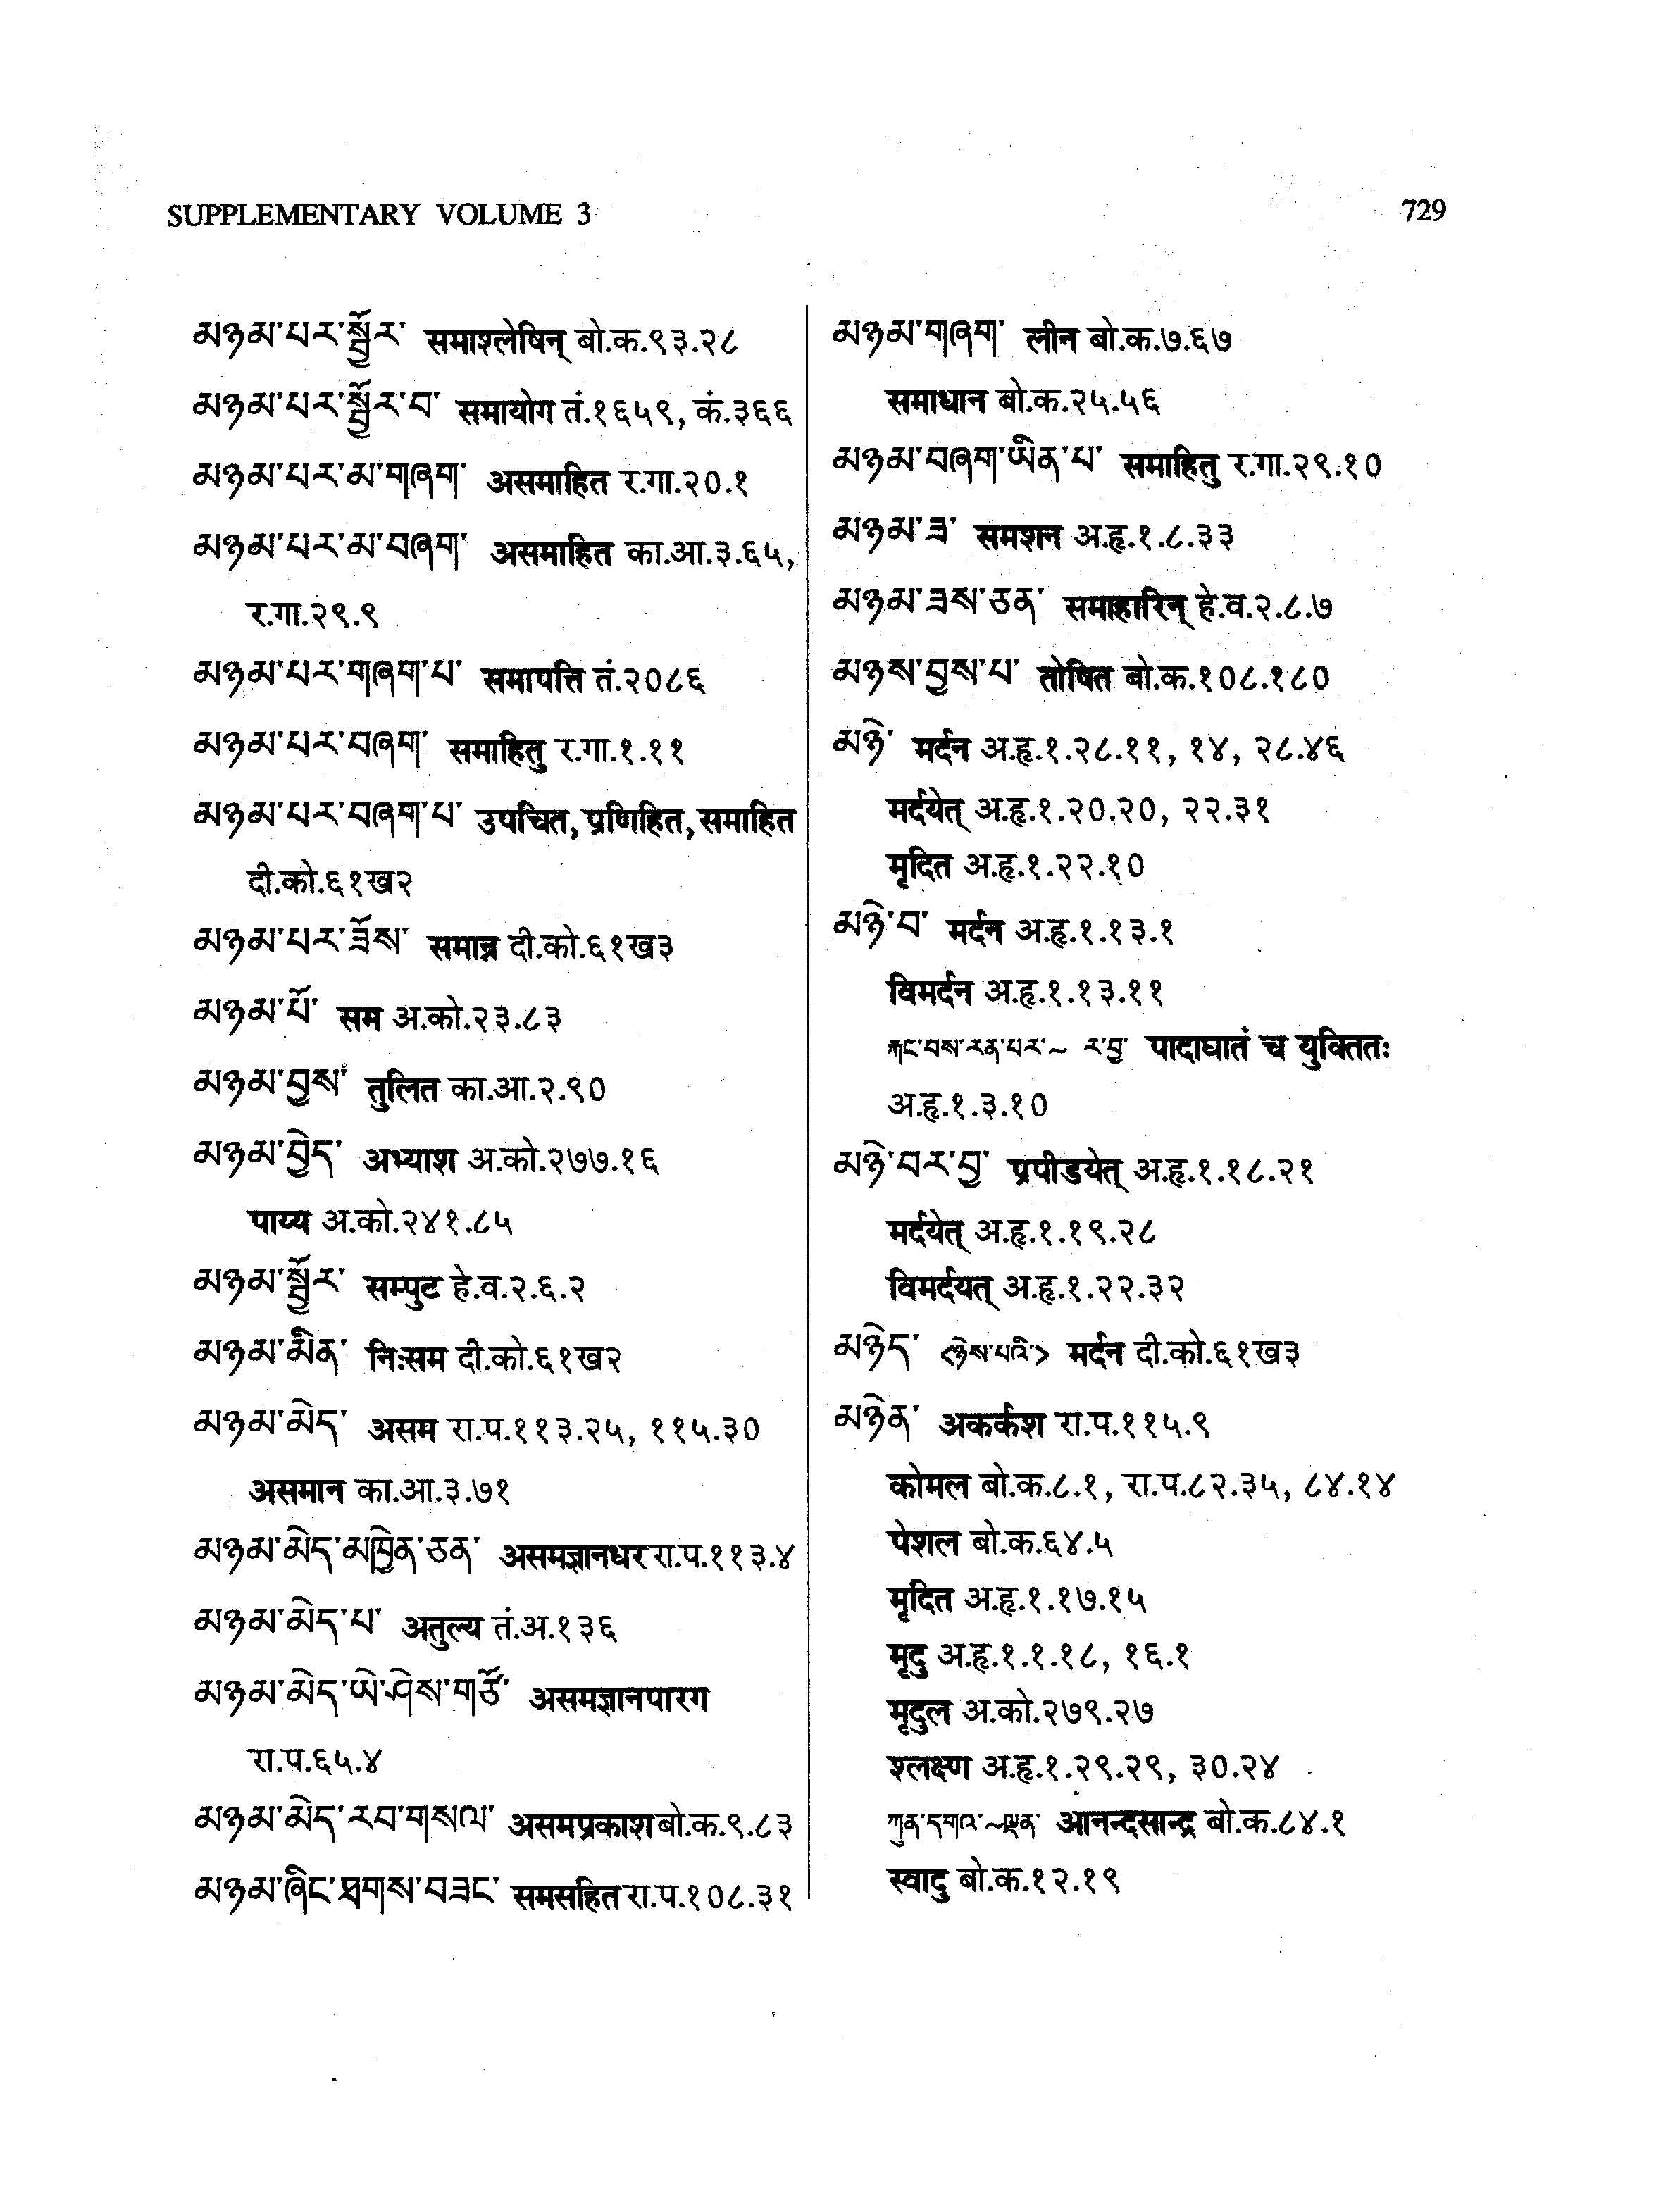 SUPPLEMENTARY VOLUME 3
729
མཉམ་པར་སྦྱོར་ समाश्लेषिन् बो.क.९३.२८
མཉམ་པར་སྦྱོར་བ་ समायोग तं.१६५९, कं.३६६
མཉམ་པར་མ་གཞག་ असमाहित र.गा.२०.१
མཉམ་པར་མ་བཞག་ असमाहित का.आ.३.६५,
र.गा.२९.९
མཉམ་པར་གཞག་པ་ समापत्ति तं.२०८६
མཉམ་པར་བཞག་ समाहितु र.गा.१.११
མཉམ་པར་བཞག་པ་ उपचित, प्रणिहित, समाहित
दी.को.६१ख२
མཉམ་པར་ཟོས་ समान्न दी.को.६१ख३
མཉམ་པོ་ सम अ.को.२३.८३
མཉམ་བྱས་ तुलित का.आ.२.९०
མཉམ་བྱེད་ अभ्याश अ.को.२७७.१६
पाय्य अ.को.२४१.८५
མཉམ་སྦྱོར་ सम्पुट हे.व.२.६.२
མཉམ་མིན་ निःसम दी.को.६१ख२
མཉམ་མེད་ असम रा.प.११३.२५, ११५.३०
असमान का.आ.३.७१
མཉམ་མེད་མཁྱེན་ཅན་ असमज्ञानधर रा.प.११३.४
མཉམ་མེད་པ་ अतुल्य तं.अ.१३६
མཉམ་མེད་ཡེ་ཤེས་གཙོ་ असमज्ञानपारग
रा.प.६५.४
མཉམ་མེད་རབ་གསལ་ असमप्रकाश बो.क.९.८३
མཉམ་ཞིང་ཐགས་བཟང་ समसहित रा.प.१०८.३१
མཉམ་གཞག་ लीन बो.क.७.६७
समाधान बो.क.२५.५६
མཉམ་བཞག་ཡིན་པ་ समाहितु र.गा.२९.१०
མཉམ་ཟ་ समशन अ.हृ.१.८.३३
མཉམ་ཟས་ཅན་ समाहारिन् हे.व.२.८.७
མཉས་བྱས་པ་ तोषित बो.क.१०८.१८०
མཉེ་ मर्दन अ.हृ.१.२८.११, १४, २८.४६
मर्दयेत् अ.हृ.१.२०.२०, २२.३१
मृदित अ.हृ.१.२२.१०
མཉེ་བ་ मर्दन अ.हृ.१.१३.१
विमर्दन अ.हृ.१.१३.११
རྐང་བས་རན་པར་~ ར་བྱ་ पादाघातं च युक्तितः
अ.हृ.१.३.१०
མཉེ་བར་བྱ་ प्रपीडयेत् अ.हृ.१.१८.२१
मर्दयेत् अ.हृ.१.१९.२८
विमर्दयत् अ.हृ.१.२२.३२
མཉེད་ <ཉེས་པའི་> मर्दन दी.को.६१ख३
མཉེན་ अकर्कश रा.प.११५.९
कोमल बो.क.८.१, रा.प.८२.३५, ८४.१४
पेशल बो.क.६४.५
मृदित अ.हृ.१.१७.१५
मृदु अ.हृ.१.१.१८, १६.१
मृदुल अ.को.२७९.२७
श्लक्ष्ण अ.हृ.१.२९.२९, ३०.२४
ཀུན་དགའ་~ལྡན་ आनन्दसान्द्र बो.क.८४.१
स्वादु बो.क.१२.१९